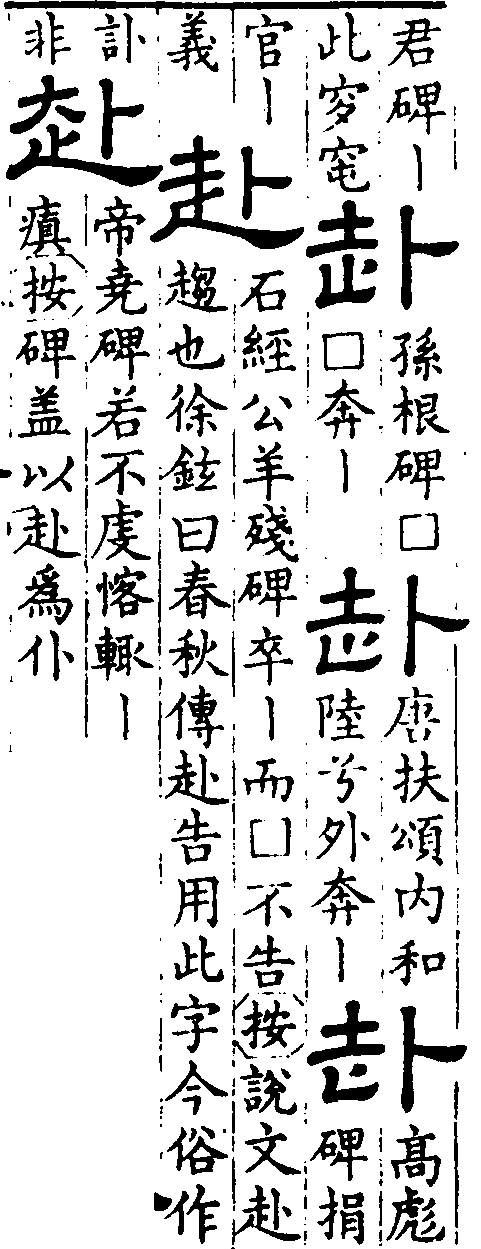 君碑丨
此穸窀
赴
孫根碑□
□奔丨
赴
唐扶頌内和
陸兮外奔丨
赴
高彪
碑捐
官丨
義
赴
石經公羊殘碑卒丨而□不告按說文赴
趨也徐鉉曰春秋傳赴告用此字今俗作
訃
非
赴
帝堯碑若不虔愘輙丨
瘨按碑盖以赴爲仆